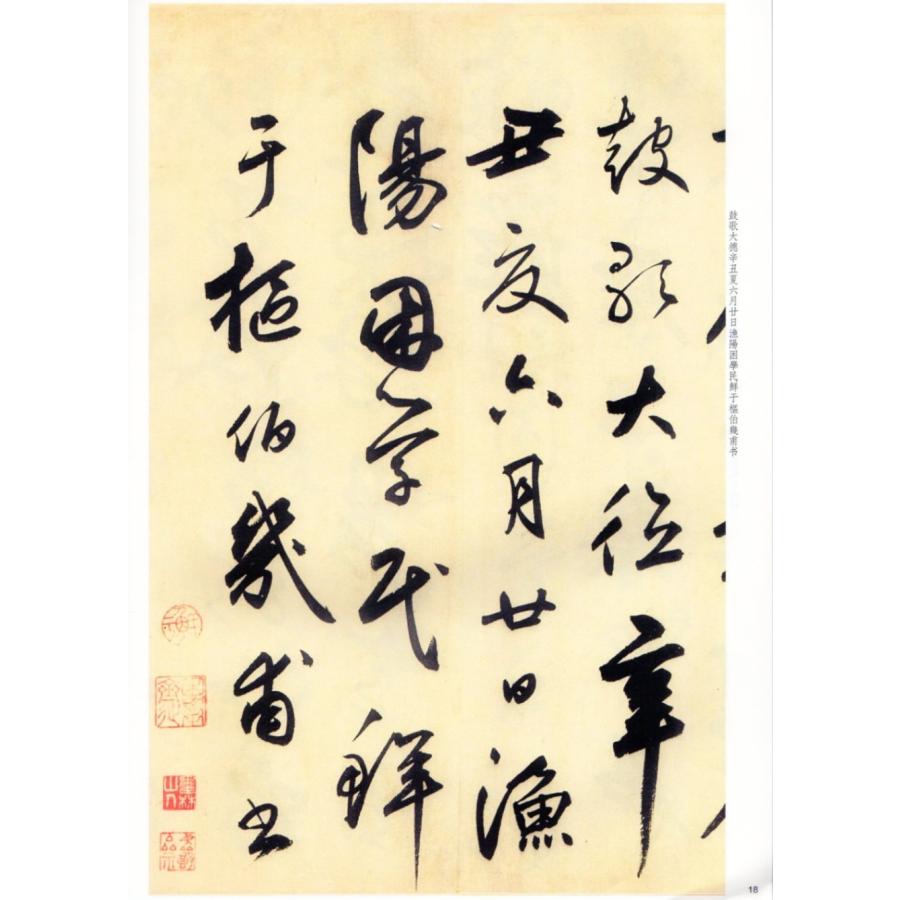 鼓歌大德辛
丑夏六月廿日漁
陽困學民鮮
于樞伯幾甫书
鼓歌大德辛丑夏六月廿日漁陽困學民鮮于樞伯幾甫书
18